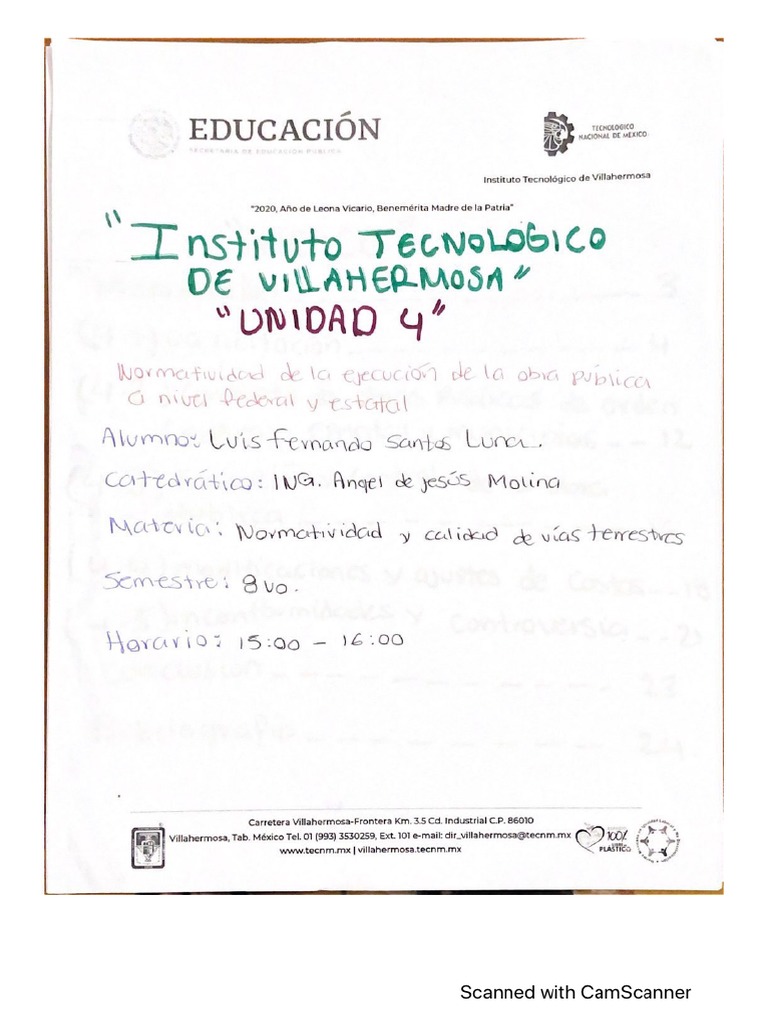 EDUCACIÓN
SECRETARÍA DE EDUCACIÓN PÚBLICA
TECNOLÓGICO
NACIONAL DE MÉXICO
Instituto Tecnológico de Villahermosa
"2020, Año de Leona Vicario, Benemérita Madre de la Patria"
"Instituto TECNOLOGICO
DE VILLAHERMOSA"
"UNIDAD 4"
Normatividad de la ejecución de la obra pública
a nivel federal y estatal
Alumno: Luis Fernando Santos Luna.
Catedrático: ING. Angel de jesús Molina
Materia: Normatividad y calidad de vías terrestres
Semestre: 8vo.
Horario: 15:00 - 16:00
Carretera Villahermosa-Frontera Km. 3.5 Cd. Industrial C.P. 86010
Villahermosa, Tab. México Tel. 01 (993) 3530259, Ext. 101 e-mail: dir_villahermosa@tecnm.mx
www.tecnm.mx | villahermosa.tecnm.mx
100%
PLÁSTICO
Scanned with CamScanner